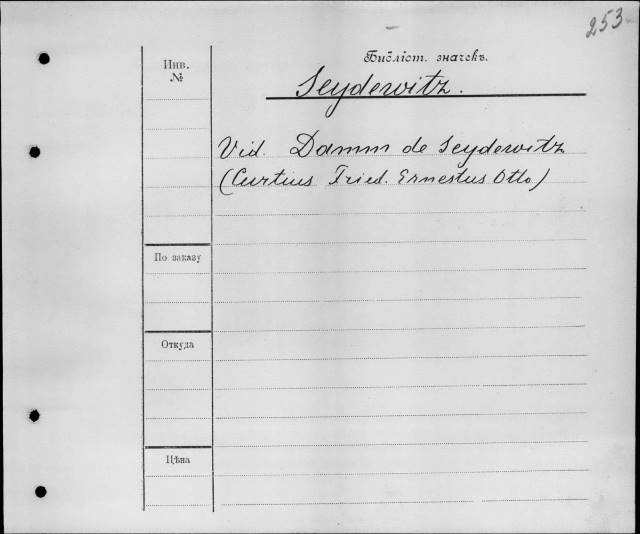 253
Библіот. значекъ.
Инв.
№
Seydewitz.
Vid. Damm de Seydewitz
(Curtius Fried. Ernestus Otto)
По заказу
Откуда
Цѣна